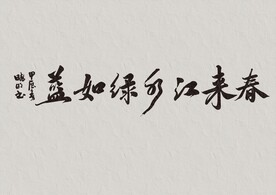 春来江水绿如蓝
甲辰